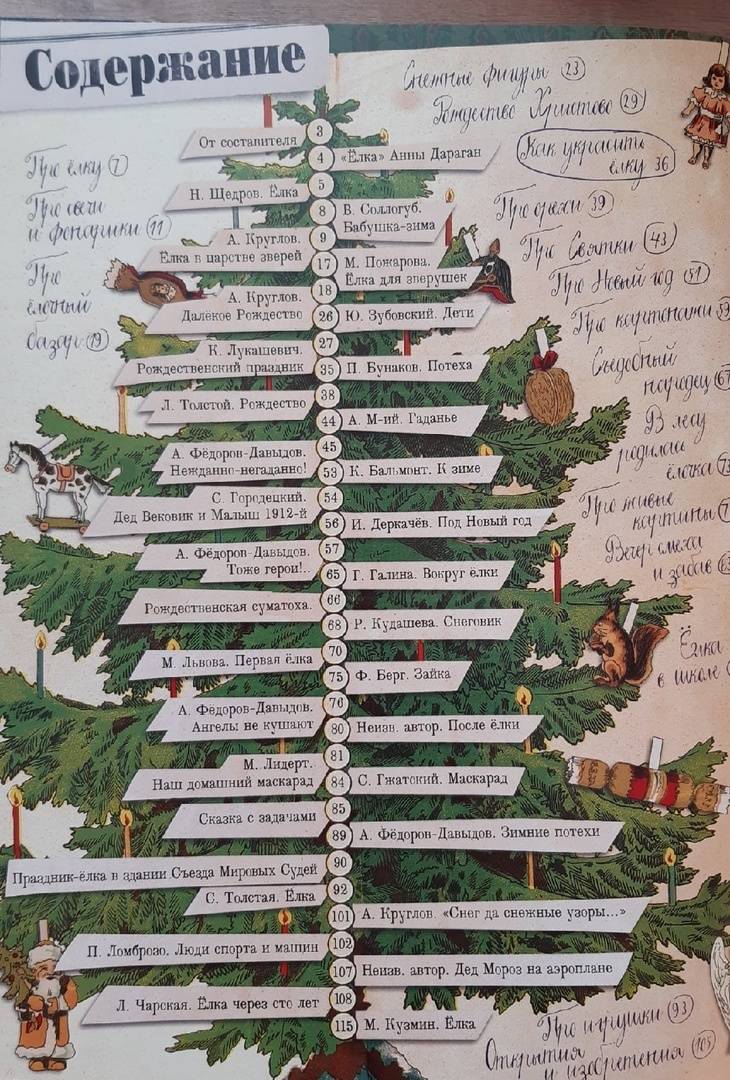 Содержание
Снежные фигуры 23
Рождество Христово 29
От составителя 3
4 «Ёлка» Анны Дараган
Как украсить
ёлку 36
Про ёлку 7
Н. Щедров. Ёлка 5
Про свечи
и фонарики 11
8 В. Соллогуб.
Бабушка-зима
Про орехи 39
А. Круглов. 9
Ёлка в царстве зверей
Про Святки 43
17 М. Пожарова.
Ёлка для зверушек
Про
ёлочный
базар 19
Про Новый год 51
А. Круглов. 18
Далёкое Рождество
26 Ю. Зубовский. Дети
Про картонажи 59
К. Лукашевич. 27
Рождественский праздник
35 П. Бунаков. Потеха
Съедобный
народец 67
Л. Толстой. Рождество 38
44 А. М-ий. Гаданье
В лесу
родилась
ёлочка
А. Фёдоров-Давыдов. 45
Нежданно-негаданно!
53 К. Бальмонт. К зиме
С. Городецкий. 54
Дед Вековик и Малыш 1912-й
56 И. Деркачёв. Под Новый год
Про живые
картины
А. Фёдоров-Давыдов. 57
Тоже герои!..
65 Г. Галина. Вокруг ёлки
Вечер смеха
и забав
Рождественская суматоха. 66
68 Р. Кудашева. Снеговик
Ёлка
в школе
М. Львова. Первая ёлка 70
75 Ф. Берг. Зайка
А. Федоров-Давыдов. 76
Ангелы не кушают
80 Неизв. автор. После ёлки
М. Лидерт. 81
Наш домашний маскарад
84 С. Гжатский. Маскарад
Сказка с задачами 85
89 А. Фёдоров-Давыдов. Зимние потехи
Праздник-ёлка в здании Съезда Мировых Судей 90
С. Толстая. Ёлка 92
101 А. Круглов. «Снег да снежные узоры...»
П. Ломброзо. Люди спорта и машин 102
107 Неизв. автор. Дед Мороз на аэроплане
Л. Чарская. Ёлка через сто лет 108
115 М. Кузмин. Ёлка
Про игрушки 93
Открытия
и изобретения 105